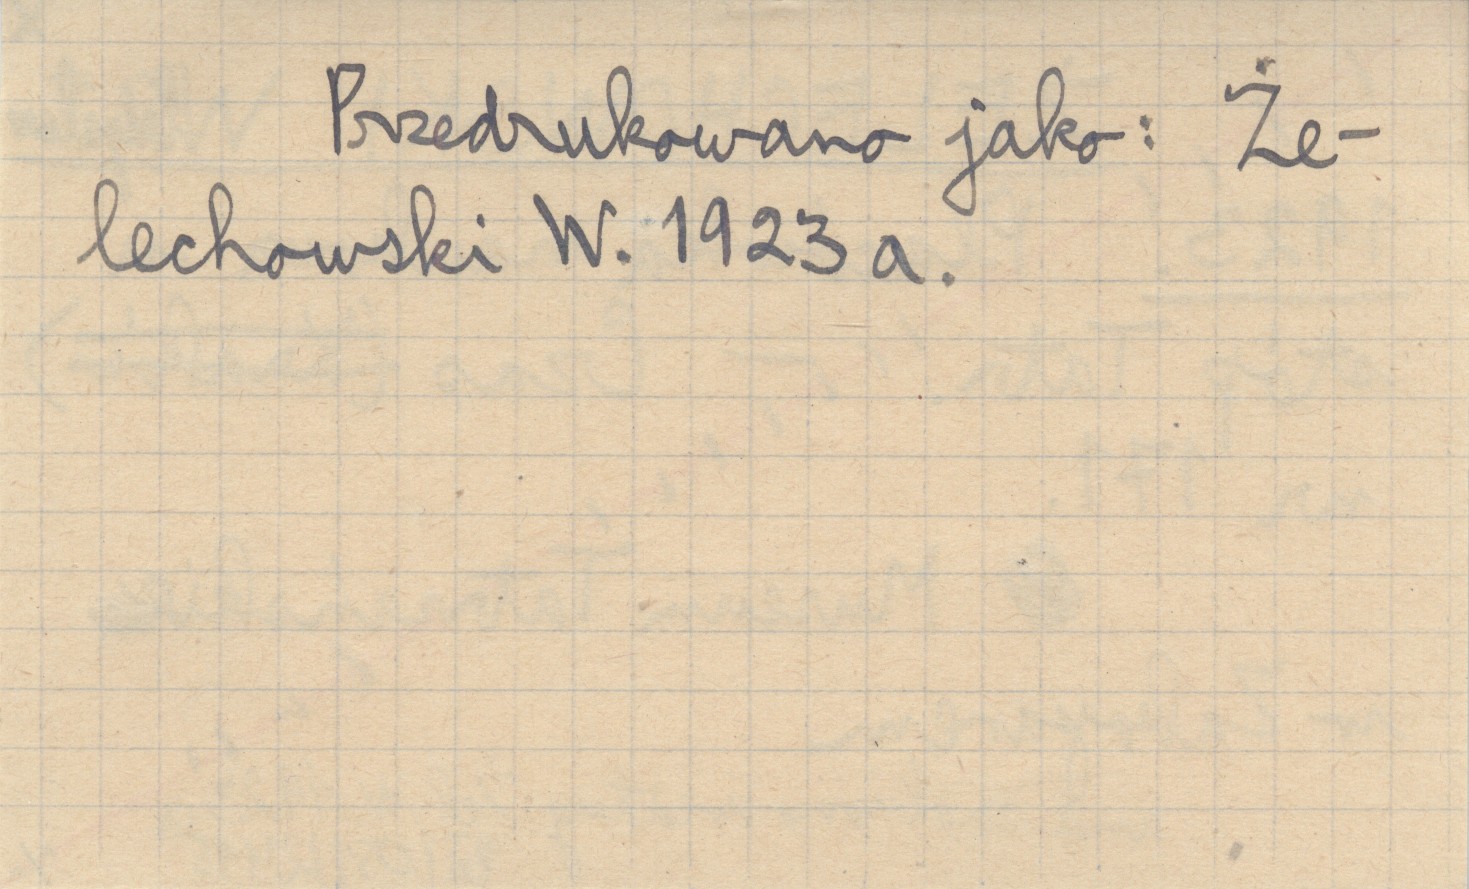 Przedrukowano jako: Że-
lechowski W. 1923 a.